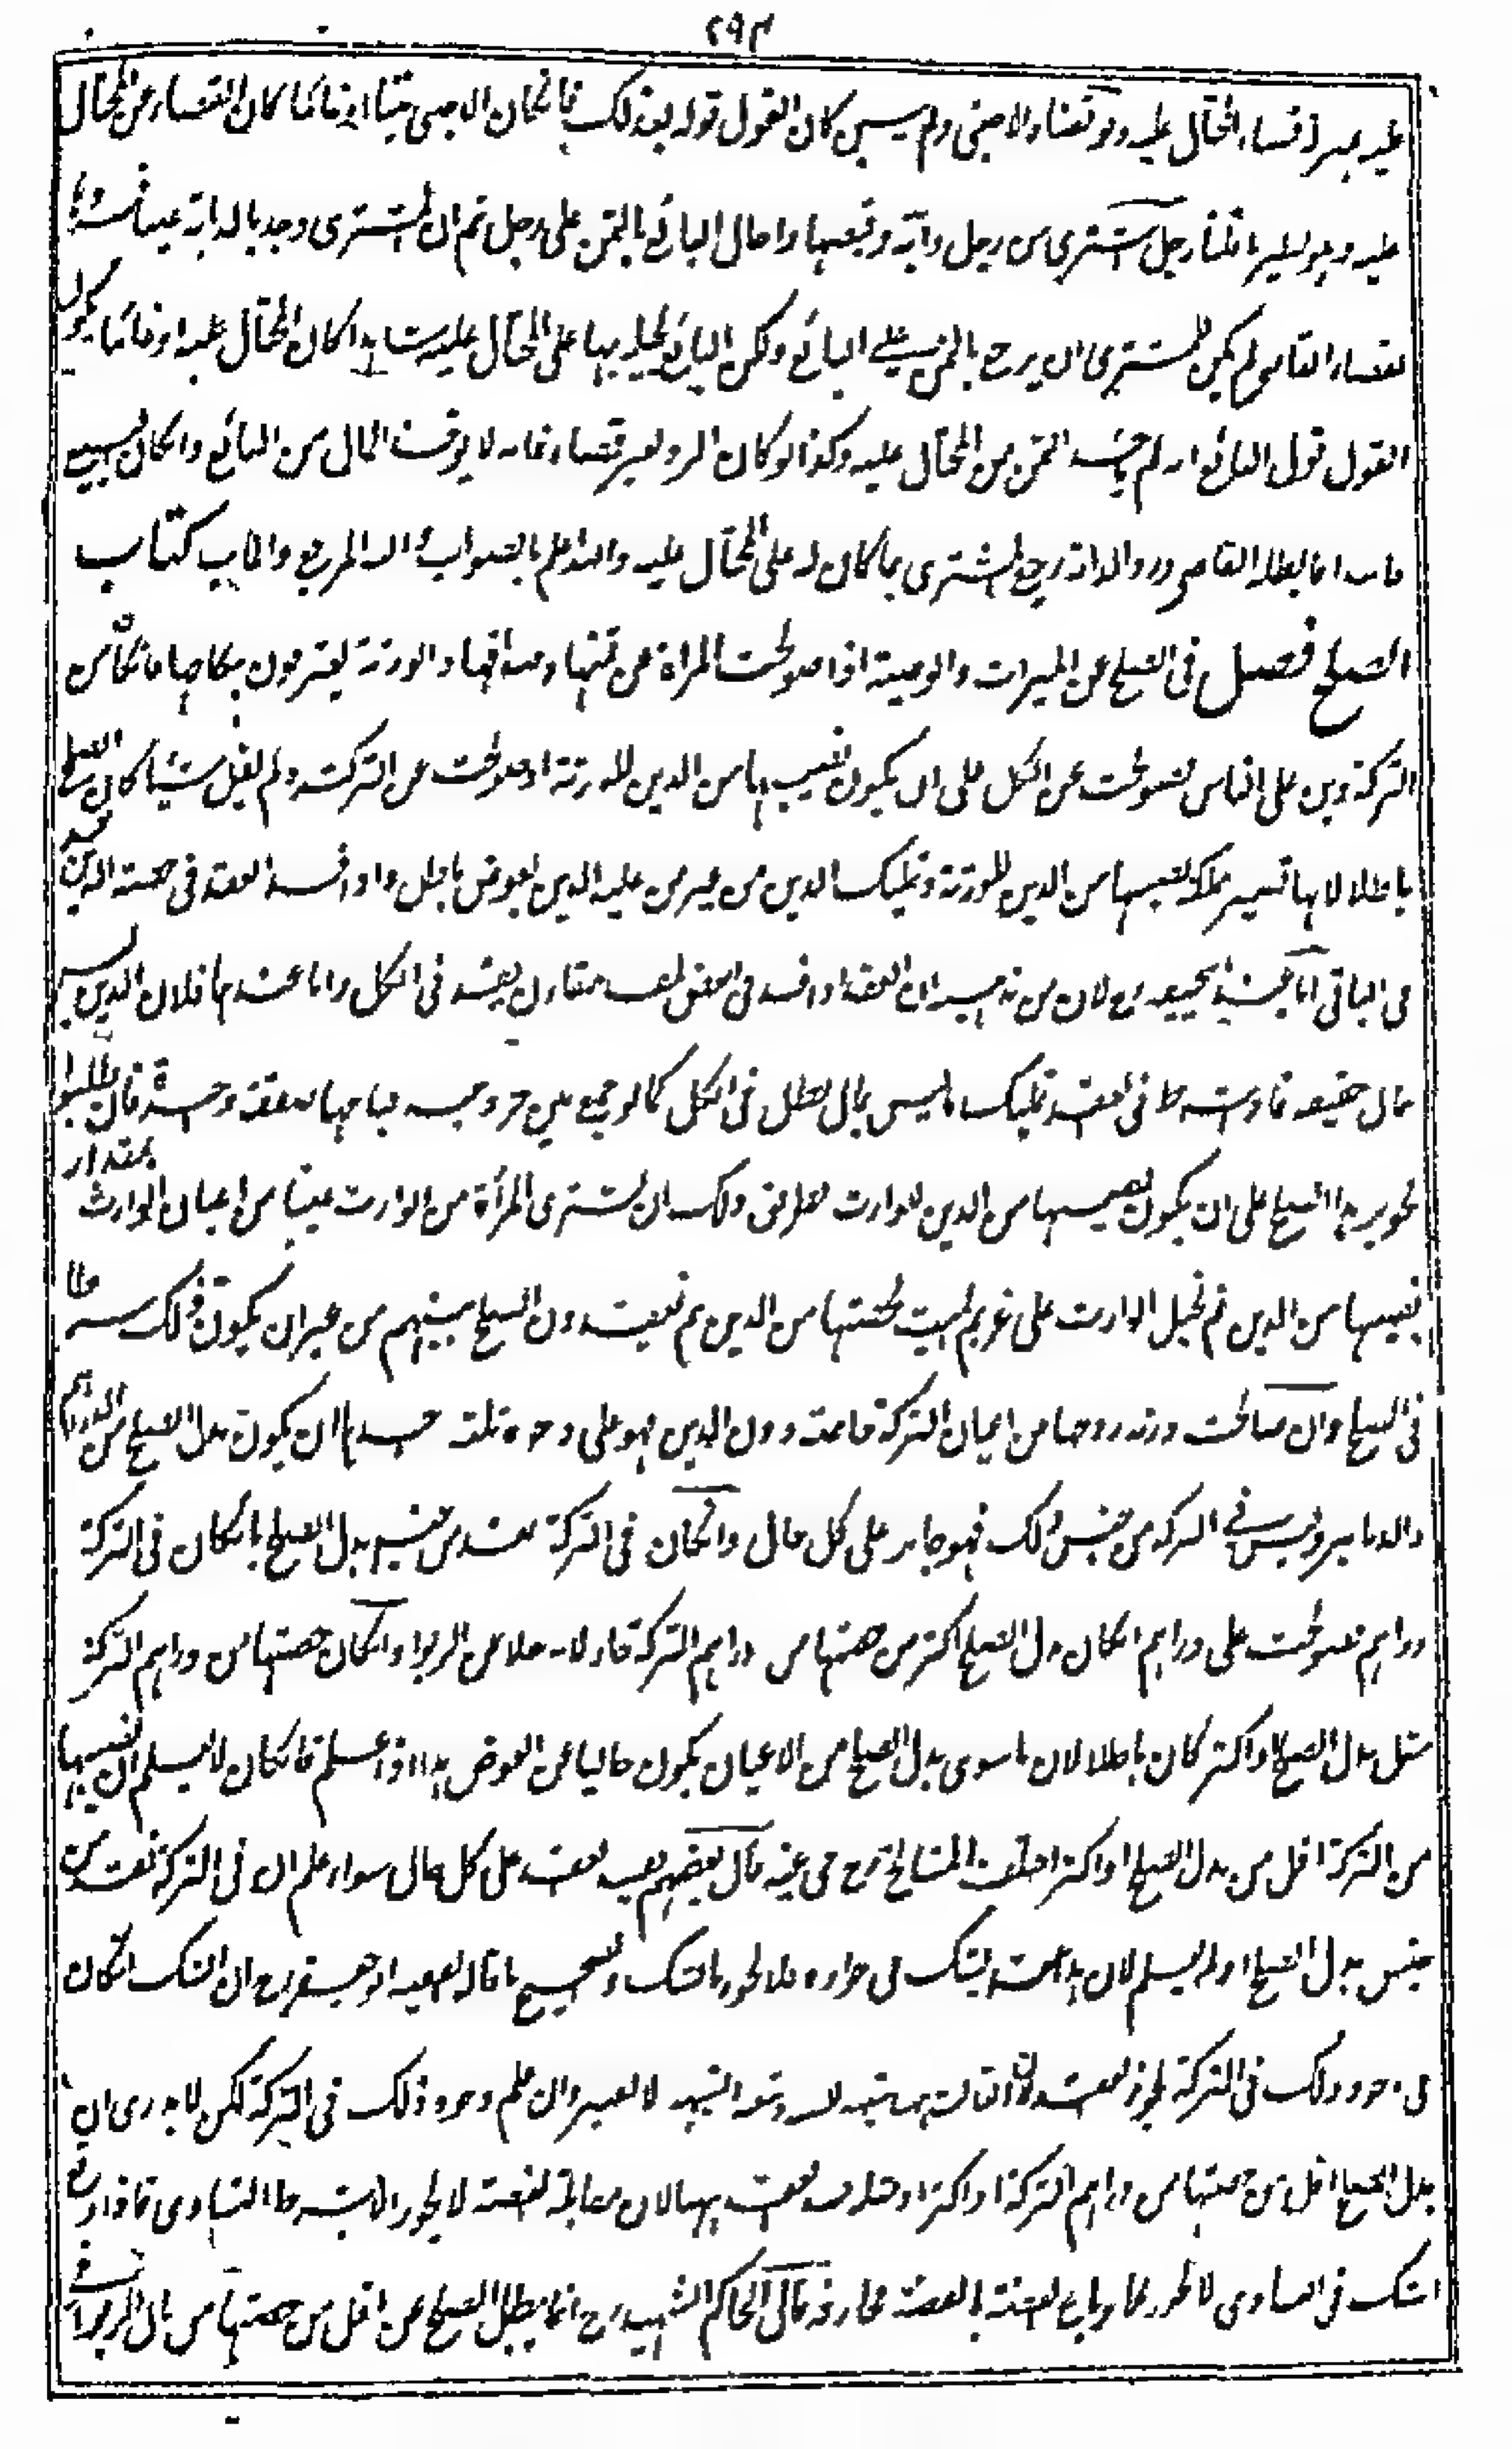 ٢٩٣
عليه بعد قضاء المحتال عليه ولو قضاء الاجنبي ولم يبين كان القول قوله بعد ذلك فانكان الاجنبي ميتا او غائبا كان القضاء عن المحتال
عليه رجل اشترى من رجل دابة وقبضها واحال البائع بالثمن على رجل ثم ان المشترى وجد بالدابة عيبا فردها
بقضاء القاضى لم يكن للمشترى ان يرجع بالثمن على البائع ولكن البائع يحيله بها على المحتال عليه شاهدا كان المحتال عليه او غائبا يكون
القول قول البائع انه لم ياخذ الثمن من المحتال عليه وكذا لو كان الرد بغير قضاء فانه لا يوخذ المال من البائع وانكان البيع
فاسدا فابطله القاضى ورد الدابة رجع المشترى بما كان له على المحتال عليه والله اعلم بالصواب واليه المرجع والماب كتاب
الصلح فصل فى الصلح عن الميراث والوصية اذا صولحت المراة عن ثمنها وصداقها والورثة يعترفون بنكاحها فانكان من
التركة دين على الناس فصولحت عن الكل على ان يكون نصيبها من الدين للورثة او صولحت عن التركة ولم يقل شيئا كان الصلح
باطلا لانها تصير مملكة نصيبها من الدين للورثة وتمليك الدين من غير من عليه الدين بعوض باطل واذا فسد العقد فى حصة الدين فسد
فى الباقى اما عند ابيحنيفه رح لان من مذهبه ان العقد اذا فسد فى البعض لفساد مقارن يفسد فى الكل واما عندهما فلان الدين ليس
مال حقيقه فاذا شرط فى العقد تمليك ما ليس بمال بطل فى الكل كما لو جمع بين حر وعبد فباعهما صفقة واحدة فان طلبوا
تجويز هذا الصلح على ان يكون نصيبها من الدين للوارث فطريق ذلك ان تشترى المرأة من الوارث عينا من اعيان الوارث بمقدار
نصيبها من الدين ثم تحيل الوارث على غريم الميت بحصتها من الدين ثم يعقدون الصلح بينهم من غير ان يكون ذلك شرطا
فى الصلح وان صالحت ورثة زوجها من اعيان التركة خاصة دون الدين فهو على وجوه ثلثة احدها ان يكون بدل الصلح من الدراهم
والدنانير وليس فى التركة من جنس ذلك فهو جايز على كل حال وانكان فى التركة نقد من جنس بدل الصلح بان كان فى التركة
دراهم فصولحت على دراهم انكان بدل الصلح اكثر من حصتها من دراهم التركة جاز لانه خلا عن الربوا وانكان حصتها من دراهم التركة
مثل بدل الصلح او اكثر كان باطلا لان ما سوى بدل الصلح من الاعيان يكون خاليا عن العوض هذا اذا علم فانكان لا يعلم ان نصيبها
من التركة اقل من بدل الصلح او اكثر اختلف المشايخ رح فيه قال بعضهم يفسد العقد على كل حال سواء علم ان فى التركة نقدا من
جنس بدل الصلح او لم يعلم لان هذا عقد الشك فى جوازه فلا يجوز بالشك والصحيح ما قاله الفقيه ابو جعفر رح ان الشك انكان
فى وجود ذلك فى التركة يجوز العقد لان الثابت هنا شبهة الشبهة لا تعتبر وان علم وجود ذلك فى التركة لكن لا يدرى ان
بدل الصلح اقل من حصتها من دراهم التركة او اكثر او مثله فسد العقد ههنا لان مقابلة الفضة لا يجوز الا بشرط التساوى فاذا وقع
الشك فى التساوى لا يجوز كما لو باع الفضة بالفضة مجازفة قال الحاكم الشهيد رح انما يبطل الصلح عن اقل من حصتها من مال الربوا فى